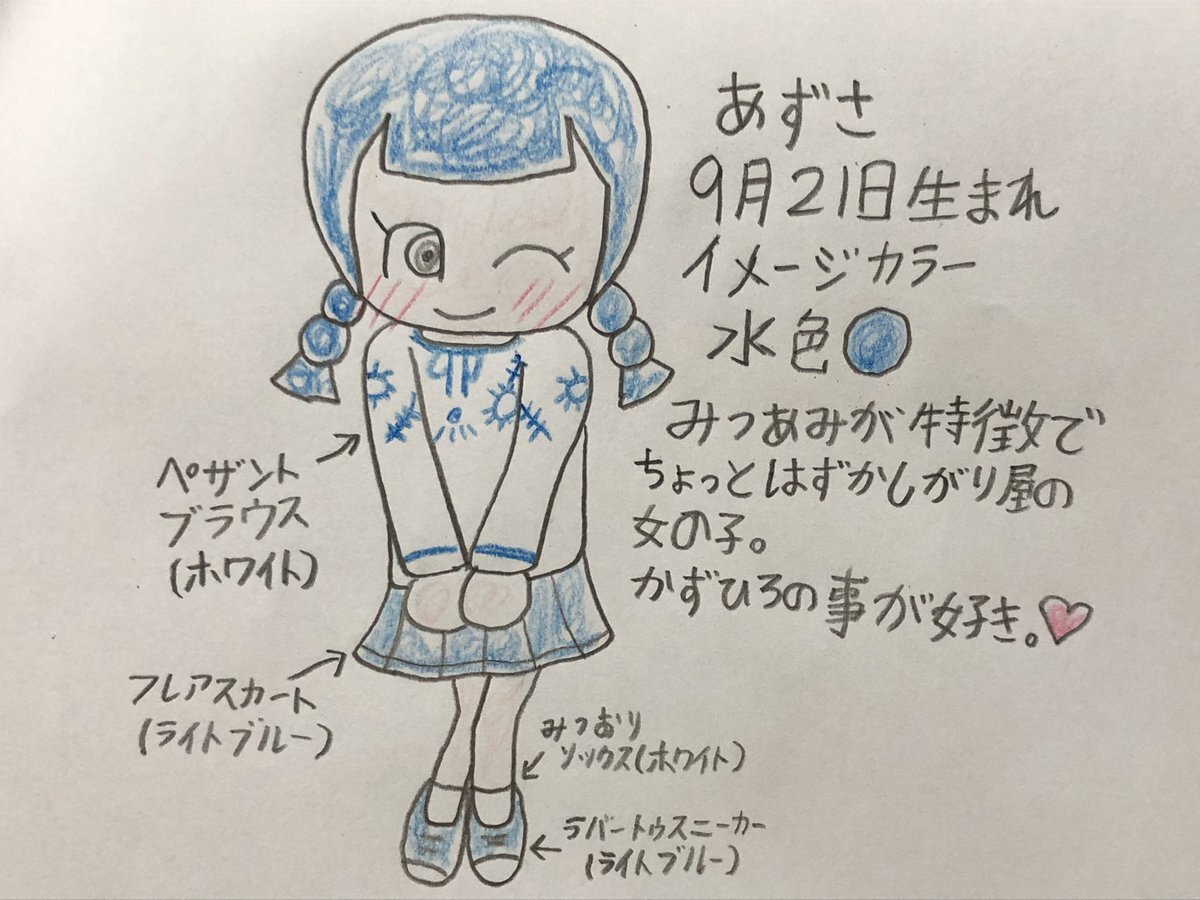 あずさ
9月21日生まれ
イメージカラー
水色
みつあみが特徴で
ちょっとはずかしがり屋の
女の子。
かずひろの事が好き。
ペザント
ブラウス
(ホワイト)
フレアスカート
(ライトブルー)
みつおり
ソックス(ホワイト)
ラバートゥスニーカー
(ライトブルー)